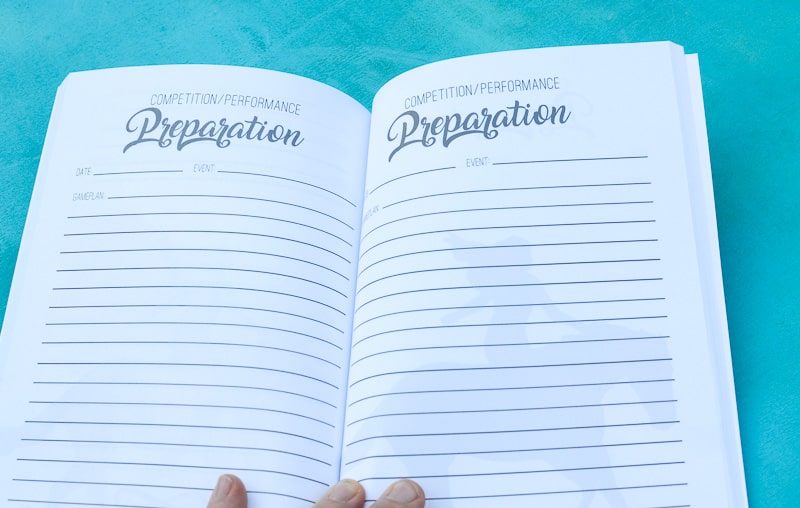 COMPETITION/PERFORMANCE
Preparation
DATE EVENT:
GAMEPLAN:
COMPETITION/PERFORMANCE
Preparation
EVENT: